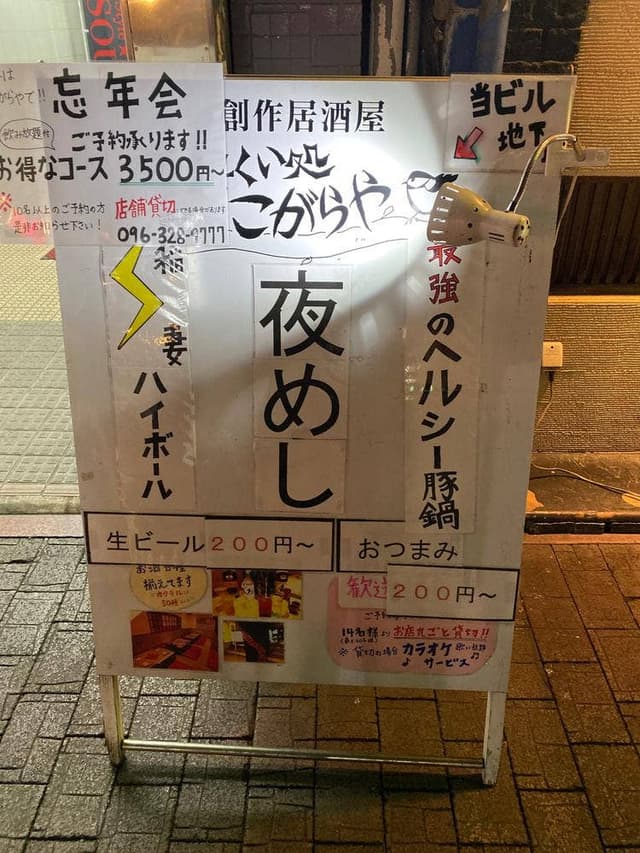 忘年会
飲み放題付
ご予約承ります!!
お得なコース 3500円~
※10名以上のご予約の方
是非お知らせ下さい!
店舗貸切
096-328-9777
創作居酒屋
くい処
こがらや
当ビル
地下
稲妻ハイボール
夜めし
最強のヘルシー豚鍋
生ビール200円~
おつまみ
200円~
お酒各種
揃えてます
歓送
14名様よりお店丸ごと貸切!!
※貸切の場合 カラオケ
サービス